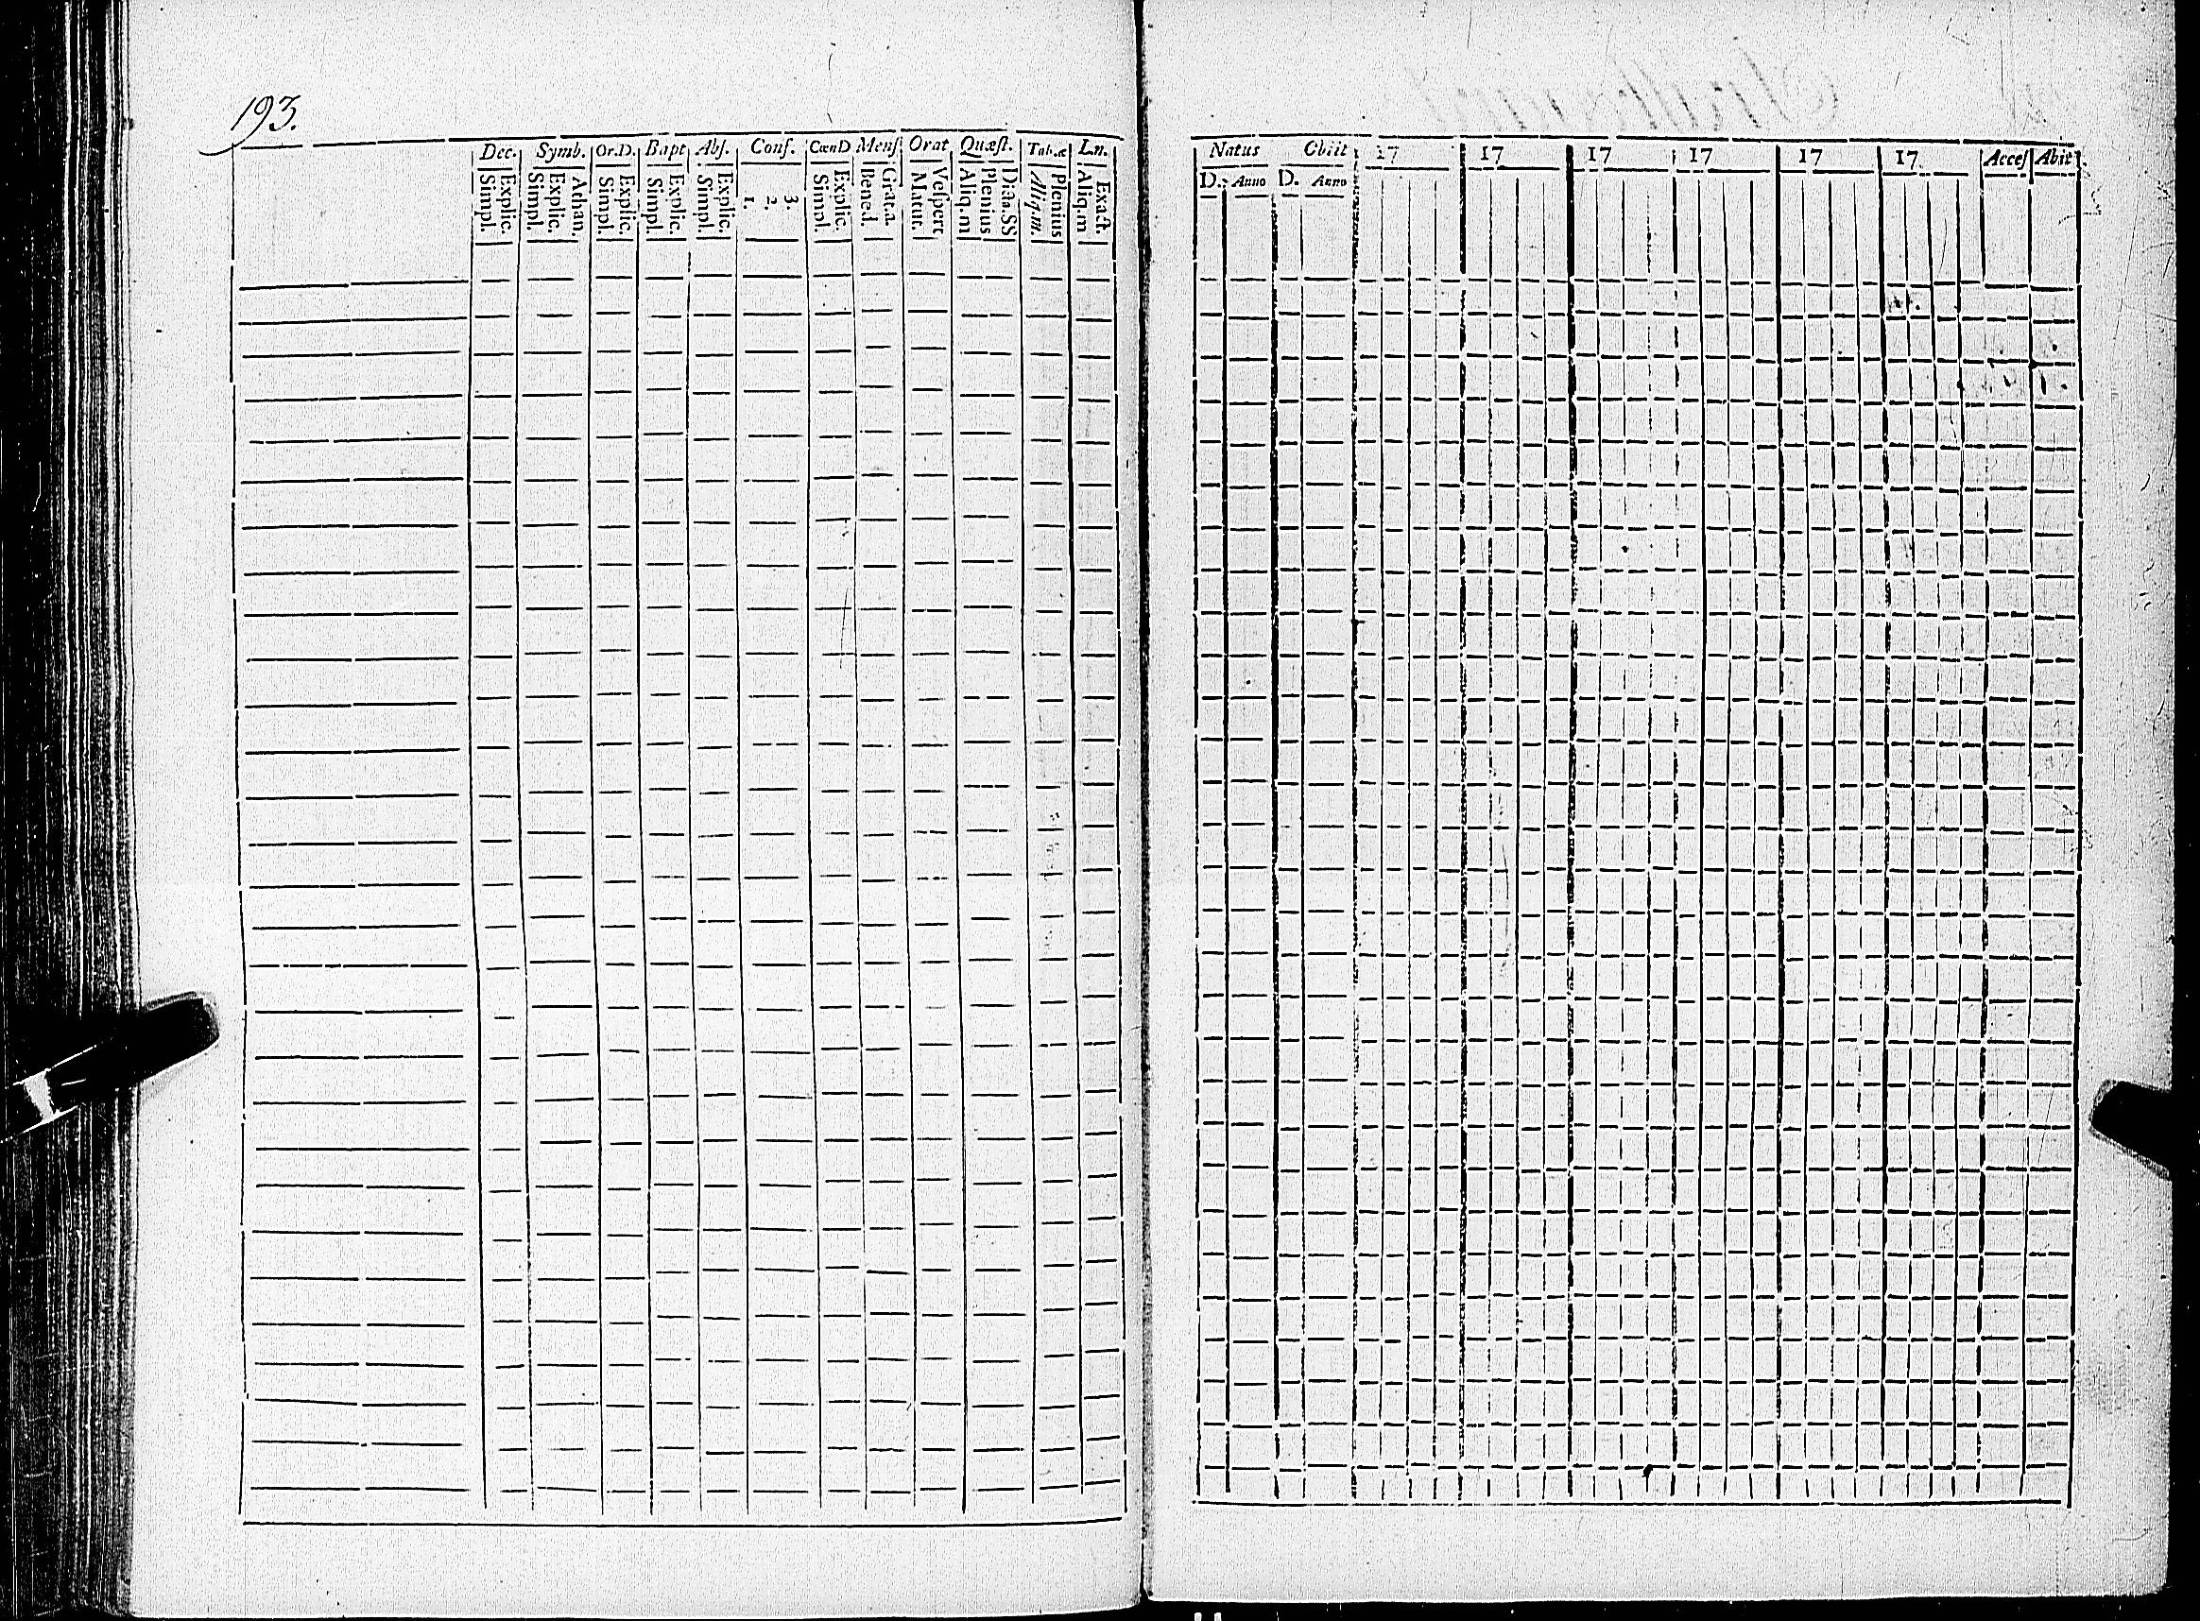 193.
Dec. Symb. Or.D. Bapt Abſ. Conf. CœnD Menſ Orat Quæſt. Tab.æ Ln.
Explic. Simpl.
Athan. Explic. Simpl.
Explic. Simpl.
Explic. Simpl.
Explic. Simpl.
3. 2. 1.
Explic. Simpl.
Grat.a. Bened.
Veſpert Matut.
Plenius Aliq.m
Plenius Aliq.m.
Exact. Aliq.m
Natus Obiit 17 17 17 17 17 17 Acceſ Abit
D. Anno D. Anno